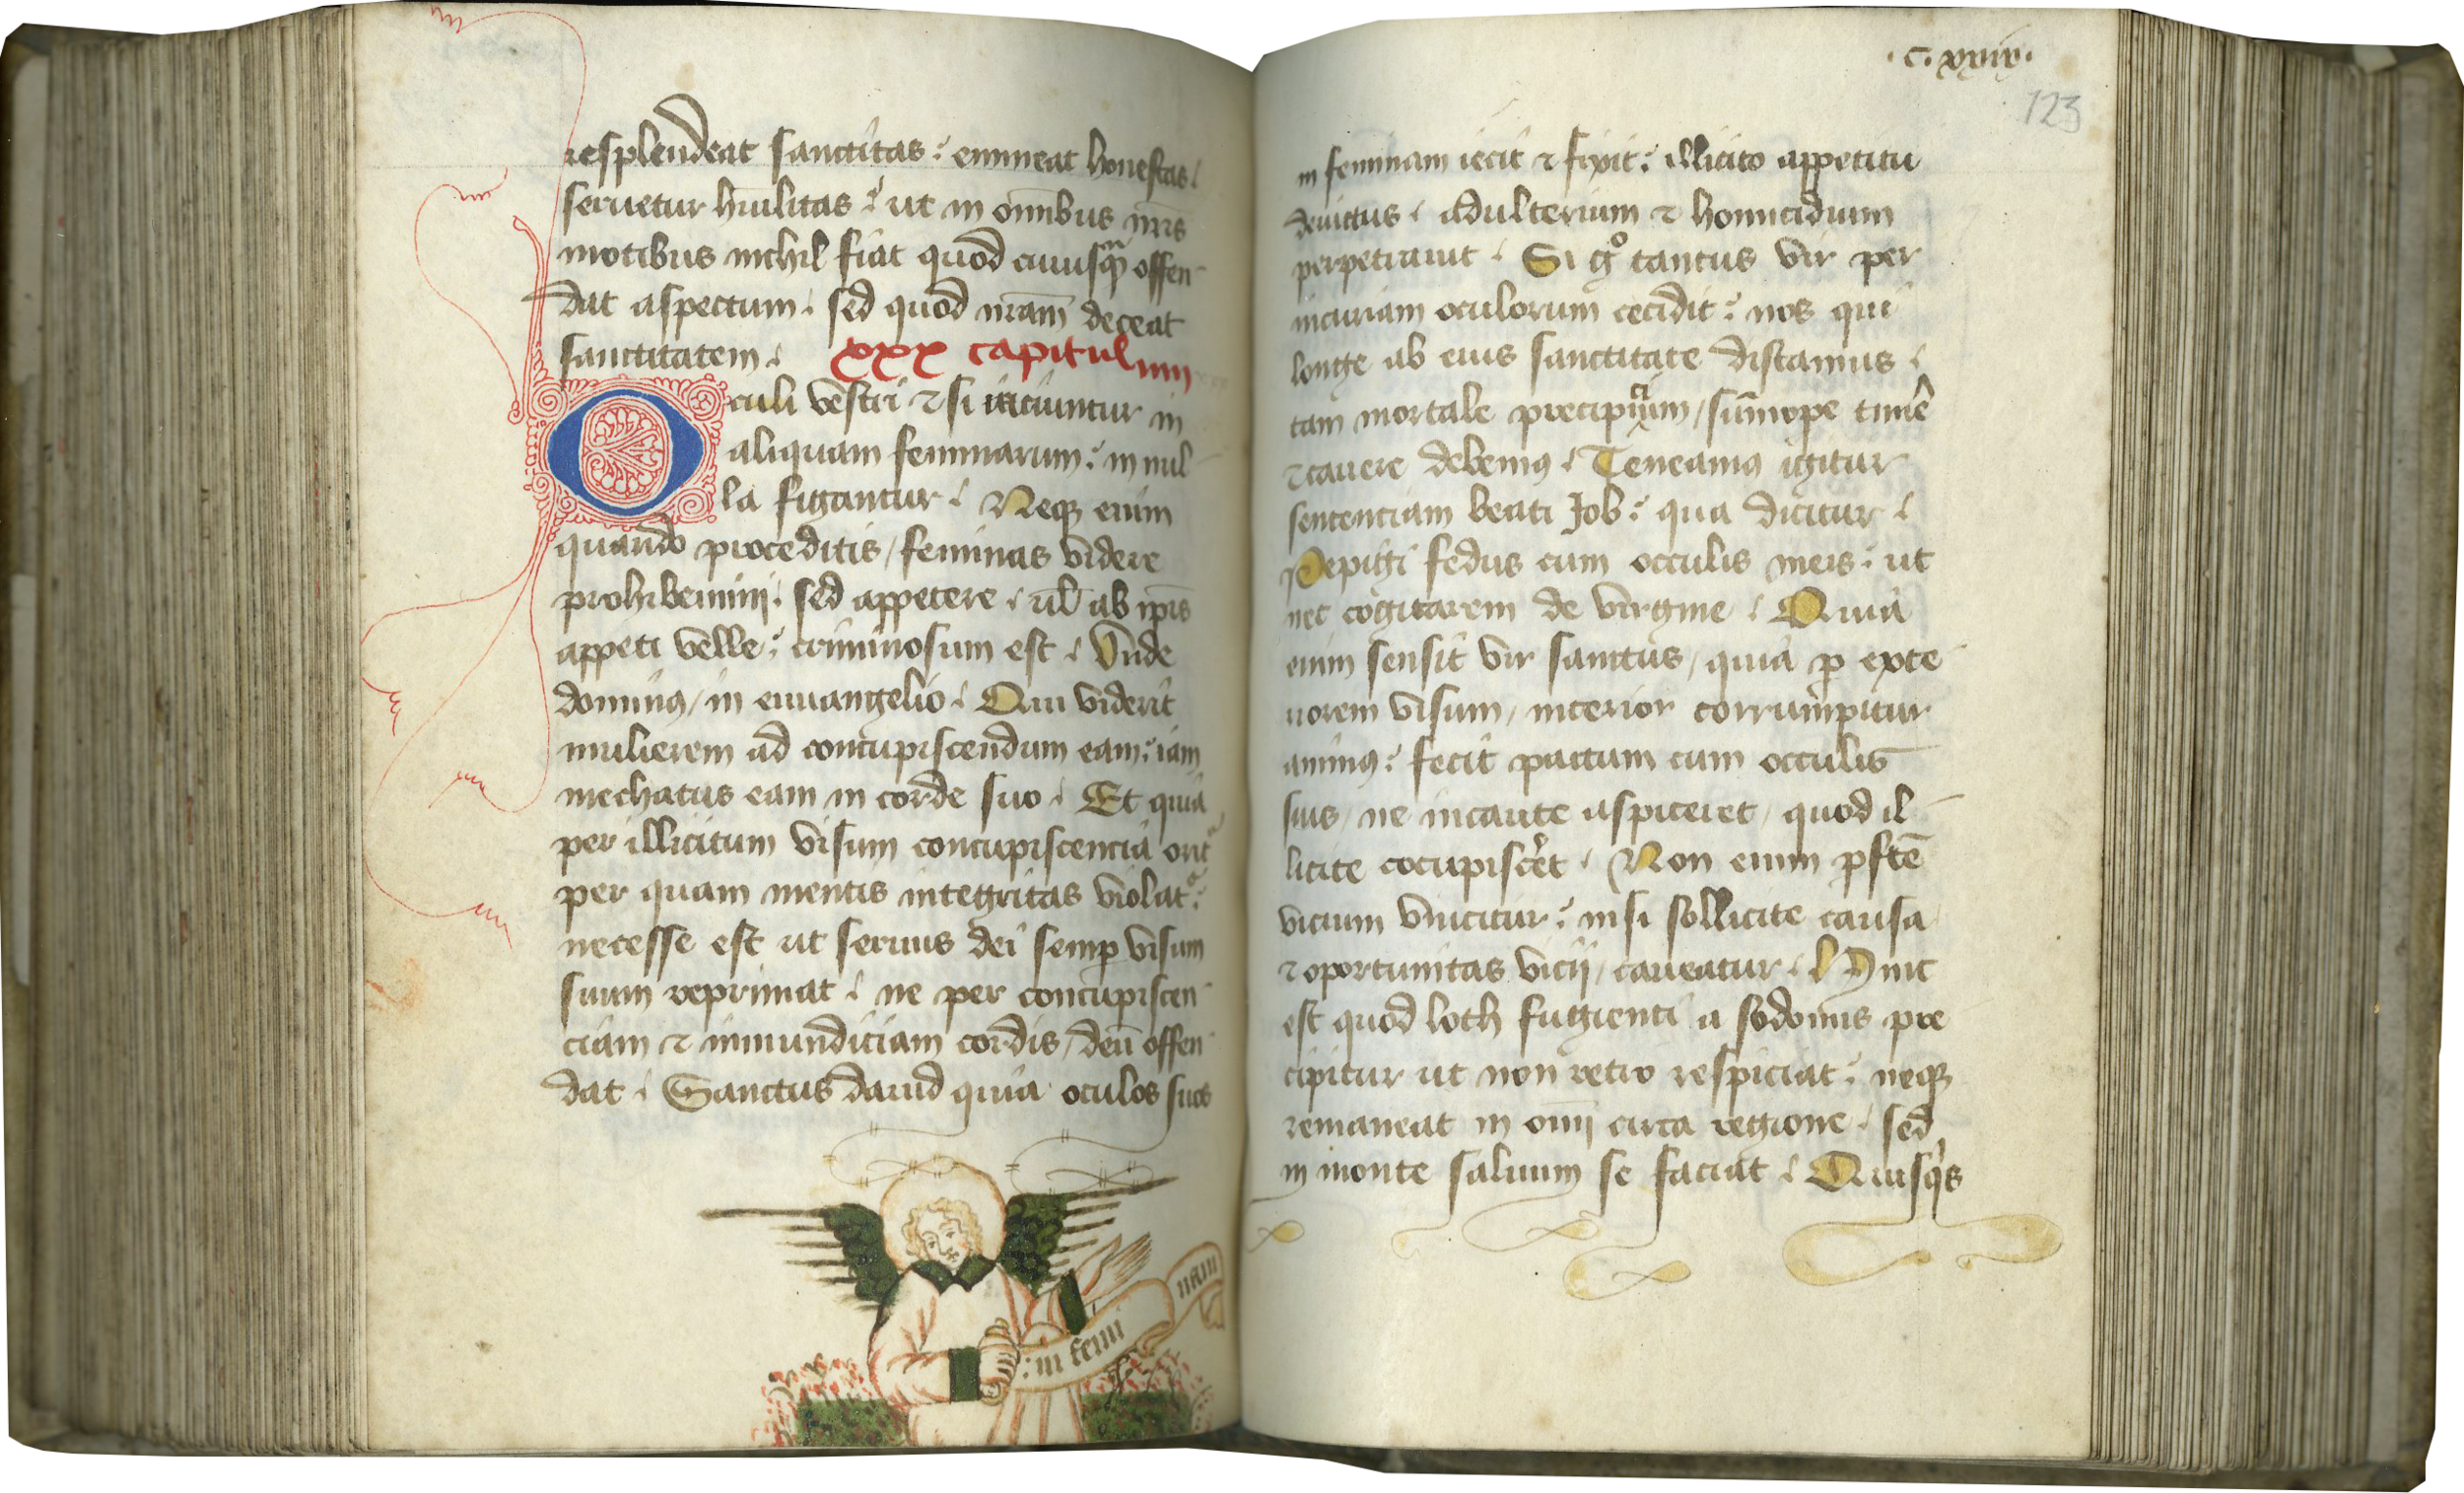 resplendeat sanctitas: emineat honestas.
seruetur hūilitas: ut in om̄ibus nr̄is
motibus nichil fiat quod cuiusqᷓꝫ offen
dat aspectum. sed quod nr̄am deceat
sanctitatem. xxx capitulum
Oculi vestri ⁊ si iiciuntur in
aliquam feminarum: in nul
la figantur. Neqꝫ enim
quando proceditis / feminas videre
prohibemini: sed appetere. ul̄ ab ip̄is
appeti velle: criminosum est. Vnde
dominꝰ / in euuangelio. Qui viderit
mulierem ad concupiscendum eam: iam
mechatus eam in corde suo. Et quia
per illicitum visum concupiscencia orit᷑
per quam mentis integritas violat᷑:
necesse est ut seruus dei semꝑ visum
suum reprimat. ne per concupiscen
ciam ⁊ inmundiciam cordis / deū offen
dat. Sanctus dauid quia oculos suos
: in femi
nam
.c. xxiix.
123
in feminam iecit ⁊ fixit: illicito appetitu
deuictus. adulterium ⁊ homicidium
perpetrauit. Si gͦ tantus vir per
incuriam oculorum cecidit: nos qui
longe ab eius sanctitate distamus.
tam mortale precipicium / sūmope timē
⁊ cauere debemꝰ. Teneamꝰ igitur
sentenciam beati Job: qua dicitur.
Pepigi fedus cum occulis meis: ut
nec cogitarem de virgine. Quia
enim sensit vir sanctus / quia ꝑ exte
riorem visum / interior corrumpitur
animꝰ: fecit pactum cum occulis
suis / ne incaute aspiceret / quod il
licite cocupiscēt. Non enim ꝑfcē
vicium vincitur: nisi sollicite causa
⁊ oportunitas vicij / caueatur. Hinc
est quod loth fugienti a sodomis pre
cipitur ut non retro respiciat: neqꝫ
remaneat in om̄i circa regione. sed
in monte saluum se faciat. Quisqͥs